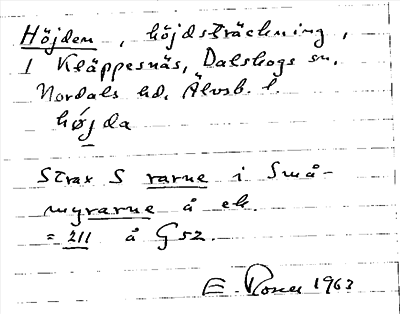 Höjden, höjdsträckning,
1 Kläppesnäs, Dalskogs sn.
Nordals hd. Älvsb. l.
høj da
Strax S rarne i Små-
myrarne å ek.
= 211 å G52.
E. Rosell 1963